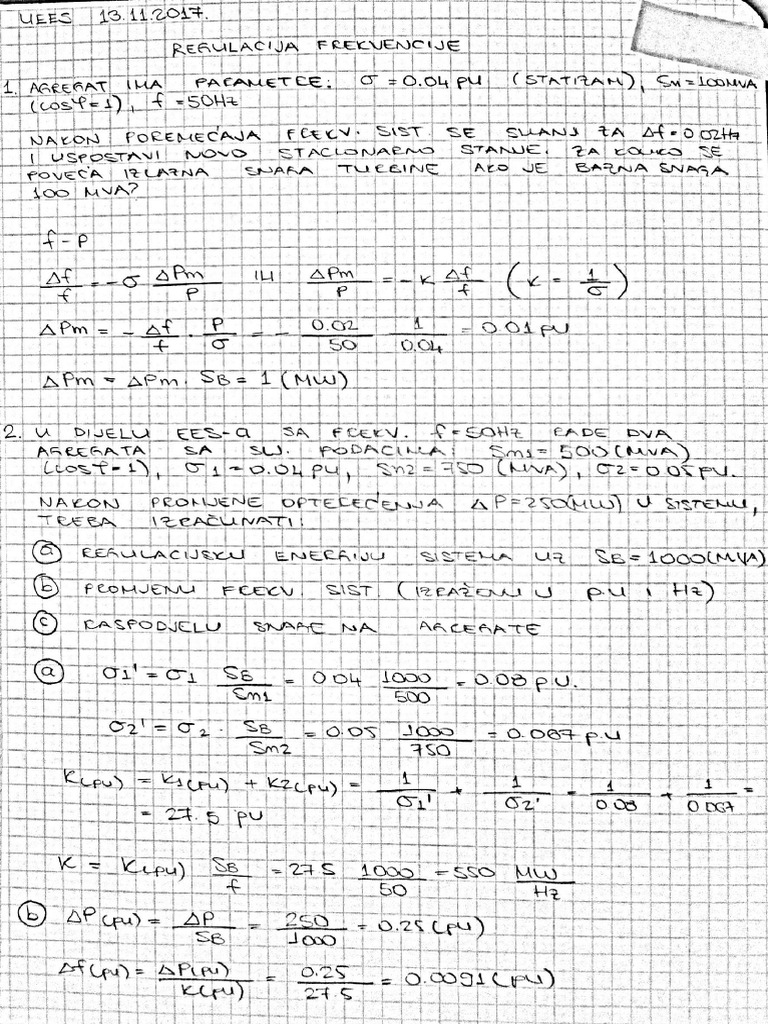 UEES 13.11.2017.
REGULACIJA FREKVENCIJE
1. AGREGAT IMA PARAMETRE: σ = 0.04 pu (STATIZAM), Sn = 100MVA
(cosφ=1), f = 50Hz
NAKON POREMEĆAJA FREKV. SIST. SE SMANJ ZA Δf = 0.02Hz
I USPOSTAVI NOVO STACIONARNO STANJE. ZA KOLIKO SE
POVEĆA IZLAZNA SNAGA TURBINE AKO JE BAZNA SNAGA
100 MVA?
f - P
Δf/f = -σ ΔPm/P ILI ΔPm/P = -K Δf/f (K = 1/σ)
ΔPm = - Δf/f · P/σ = - 0.02/50 1/0.04 = 0.01 pu
ΔPm = ΔPm · SB = 1 (MW)
2. U DIJELU EES-a SA FREKV. f = 50Hz RADE DVA
AGREGATA SA SLJ. PODACIMA: Sm1 = 500 (MVA)
(cosφ=1), σ1 = 0.04 pu, Sn2 = 750 (MVA), σ2 = 0.05 pu.
NAKON PROMJENE OPTEREĆENJA ΔP = 250(MW) U SISTEMU,
TREBA IZRAČUNATI:
(a) REGULACIJSKU ENERGIJU SISTEMA UZ SB = 1000(MVA)
(b) PROMJENU FREKV. SIST (IZRAŽENU U p.u I Hz)
(c) RASPODJELU SNAGE NA AGREGATE
(a) σ1' = σ1 SB/Sm1 = 0.04 1000/500 = 0.08 p.u.
σ2' = σ2 · SB/Sm2 = 0.05 1000/750 = 0.067 p.u
K(pu) = K1(pu) + K2(pu) = 1/σ1' + 1/σ2' = 1/0.08 + 1/0.067 =
= 27.5 pu
K = K(pu) SB/f = 27.5 1000/50 = 550 MW/Hz
(b) ΔP(pu) = ΔP/SB = 250/1000 = 0.25(pu)
Δf(pu) = ΔP(pu)/K(pu) = 0.25/27.5 = 0.0091(pu)